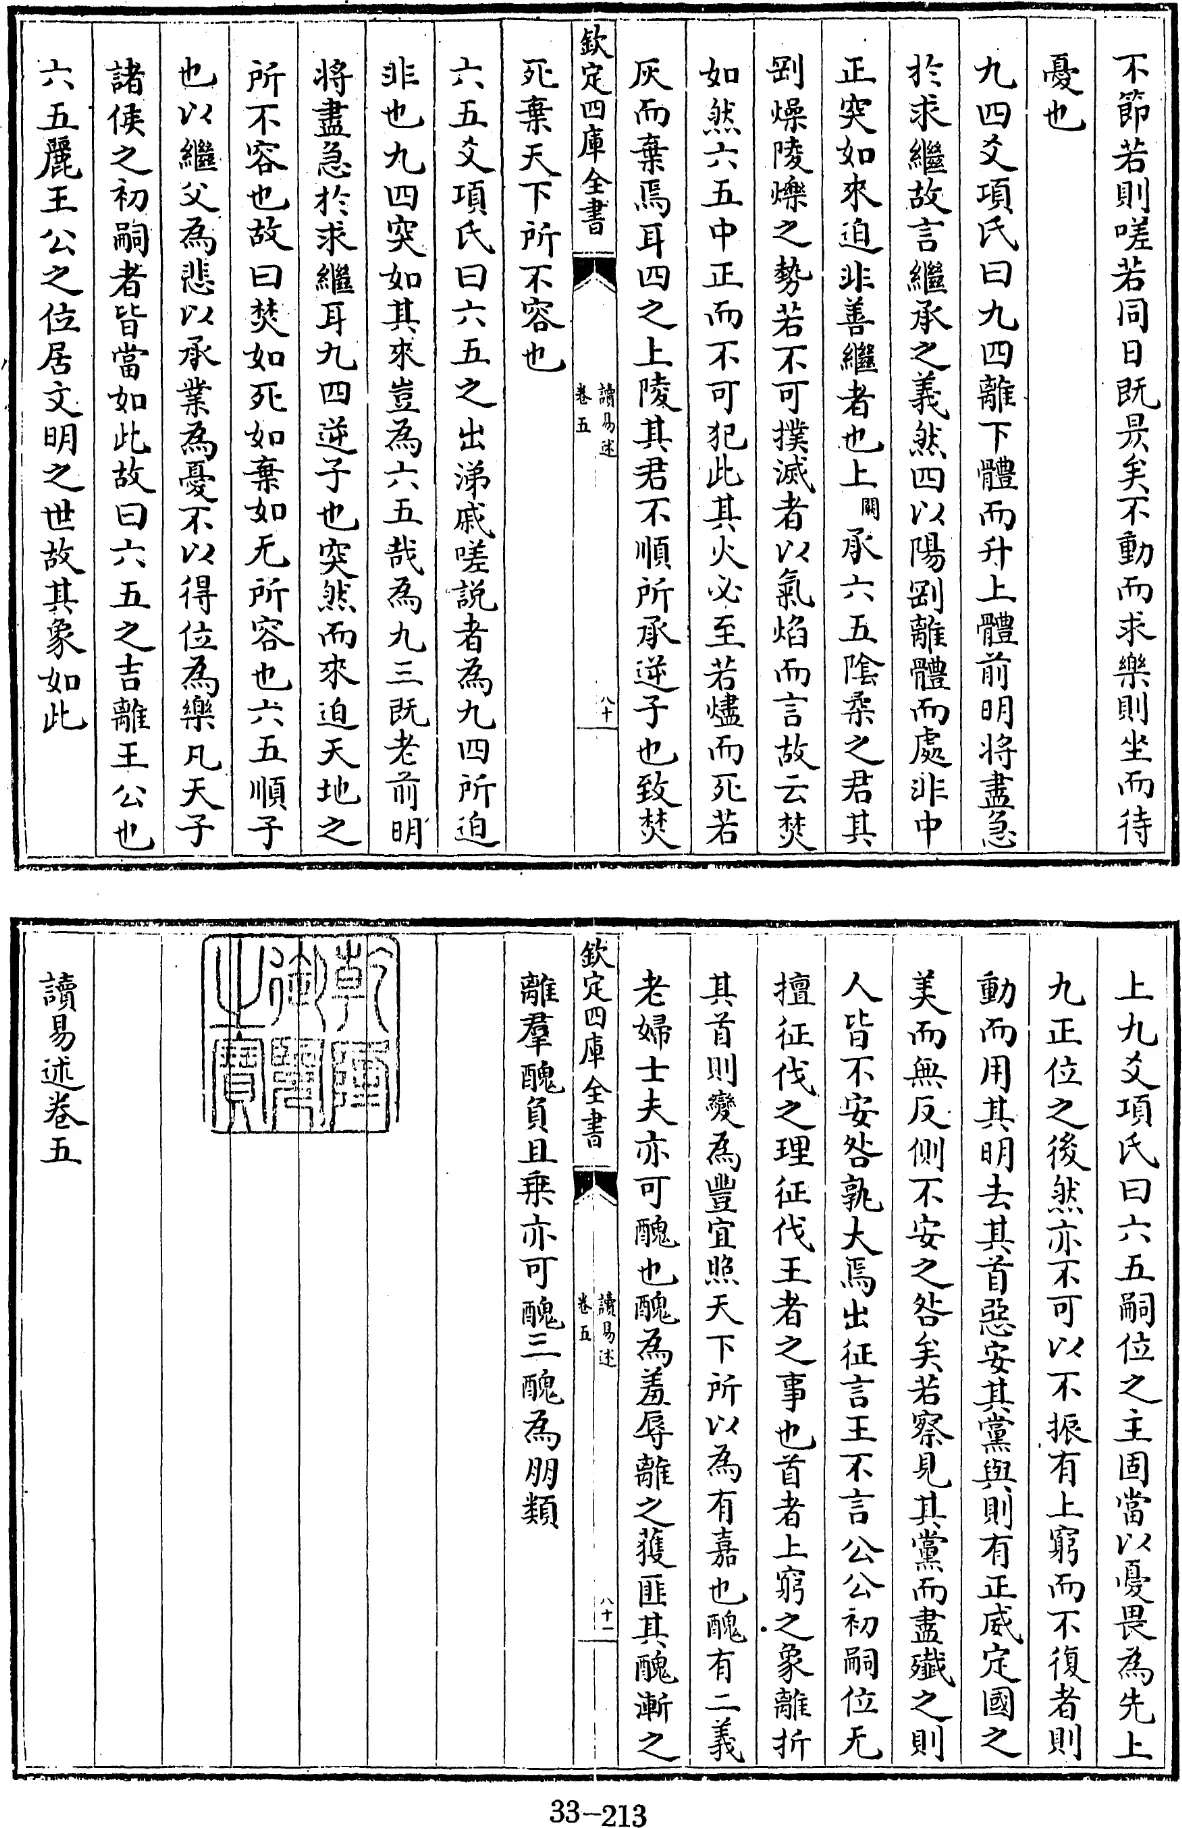 不節若則嗟若同日既昃矣不動而求樂則坐而待
憂也
九四爻項氏曰九四離下體而升上體前明将盡急
於求繼故言繼承之義然四以陽剛離體而處非中
正突如來迫非善繼者也上闕承六五陰柔之君其
剛燥陵爍之勢若不可撲滅者以氣焰而言故云焚
如然六五中正而不可犯此其火必至若燼而死若
灰而棄焉耳四之上陵其君不順所承逆子也致焚
欽定四庫全書
讀易述
卷五
八十
死棄天下所不容也
六五爻項氏曰六五之出涕戚嗟説者為九四所迫
非也九四突如其來豈為六五哉為九三既老前明
将盡急於求繼耳九四逆子也突然而來迫天地之
所不容也故曰焚如死如棄如无所容也六五順子
也以繼父為悲以承業為憂不以得位為樂凡天子
諸侯之初嗣者皆當如此故曰六五之吉離王公也
六五麗王公之位居文明之世故其象如此
上九爻項氏曰六五嗣位之主固當以憂畏為先上
九正位之後然亦不可以不振有上窮而不復者則
動而用其明去其首惡安其黨與則有正威定國之
美而無反側不安之咎矣若察見其黨而盡殱之則
人皆不安咎孰大焉出征言王不言公公初嗣位无
擅征伐之理征伐王者之事也首者上窮之象離折
其首則變為豐宜照天下所以為有嘉也醜有二義
老婦士夫亦可醜也醜為羞辱離之獲匪其醜漸之
欽定四庫全書
讀易述
卷五
八十一
離羣醜負且乗亦可醜三醜為朋類
乾隆
御覽
之寶
讀易述卷五
33-213